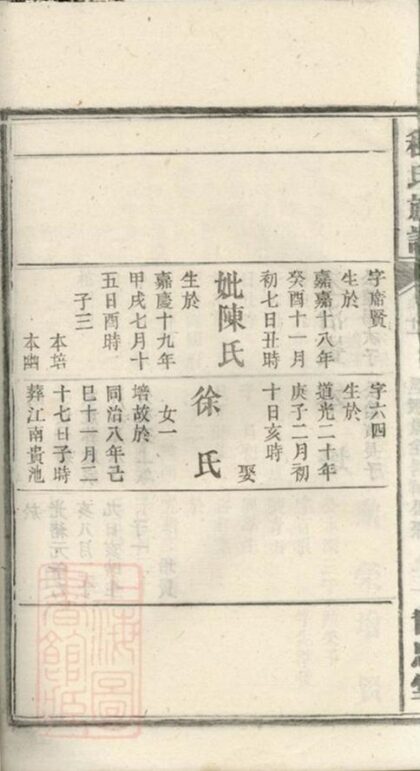 氏族譜
字席賢
生於
嘉嘉十八年
癸酉十一月
初七日丑時
妣陳氏
生於
嘉慶十九年
甲戌七月十
五日酉時
子三
本培
本幽
字六四
生於
道光二十年
庚子二月初
十日亥時
娶
徐氏
女一
培故於
同治八年己
巳十一月二
十七日子時
葬江南貴池
上海圖
書館藏